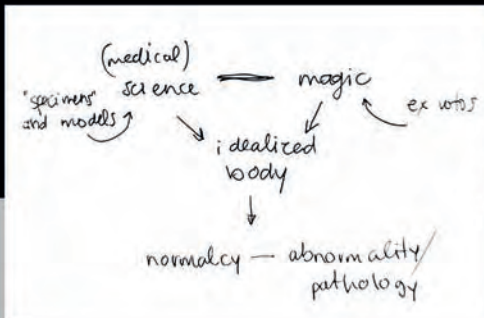 (medical)
science — magic
"specimens"
and models
ex votos
idealized
body
normalcy — abnormality/
pathology